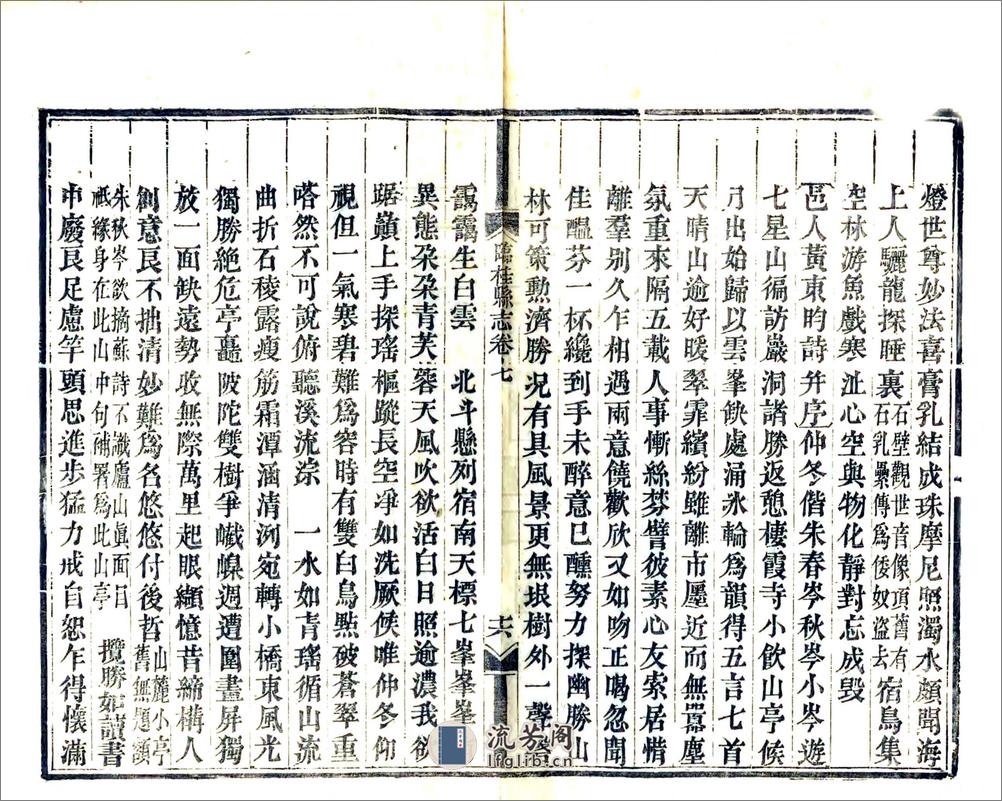 燈世尊妙法喜膏乳結成珠摩尼照濁水頗聞海
上人驪龍探睡裏石壁觀世音像頂舊有石乳纍傳爲倭奴盜去宿鳥集
空林游魚戲寒沚心空與物化靜對忘成毀
邑人黃東昀詩并序仲冬偕朱春岑秋岑小岑遊
七星山徧訪巖洞諸勝返憩棲霞寺小飲山亭候
月出始歸以雲峯缺處涌冰輪爲韻得五言七首
天晴山逾好暖翠霏繽紛雖離市廛近而無囂塵
氛重來隔五載人事慚絲棼譬彼素心友索居惜
離羣別久乍相遇兩意饒歡欣又如吻正喝忽聞
佳醞芬一杯纔到手未醉意已醺努力探幽勝山
林可策勳濟勝況有具風景更無垠樹外一聲磬
靄靄生白雲　北斗懸列宿南天標七峯峯峯
異態朵朵青芙蓉天風吹欲活白日照逾濃我欲
踞巔上手探瑤樞蹤長空淨如洗厥候唯仲冬仰
視但一氣寒碧難爲容時有雙白鳥點破蒼翠重
嗒然不可說俯聽溪流淙　一水如青瑤循山流
曲折石稜露瘦筋霜潭涵清洌宛轉小橋東風光
獨勝絕危亭矗陂陀雙樹爭巀嵲週遭圍畫屏獨
放一面缺遠勢收無際萬里起眼纈憶昔締構人
創意良不拙清妙難爲名悠悠付後哲山麓小亭舊無題額
朱秋岑欲摘蘇詩不識廬山眞面目祗緣身在此山中句補署爲此山亭　攬勝如讀書
中廢良足慮竿頭思進步猛力戒自恕乍得懷滿
臨桂縣志卷七
六
流芳阁
lfglib.cn